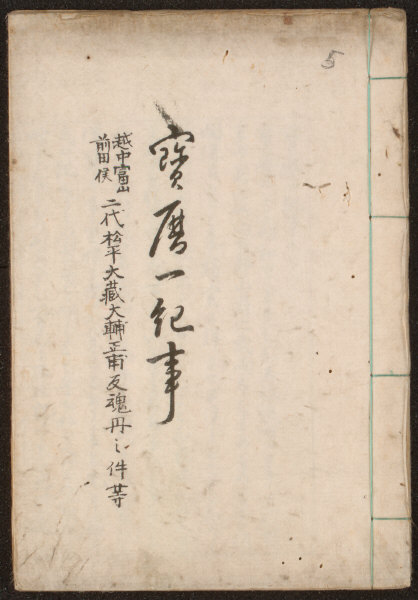 5
寶暦一紀事
越中富山
前田侯
二代松平大藏大輔正甫反魂丹之件等